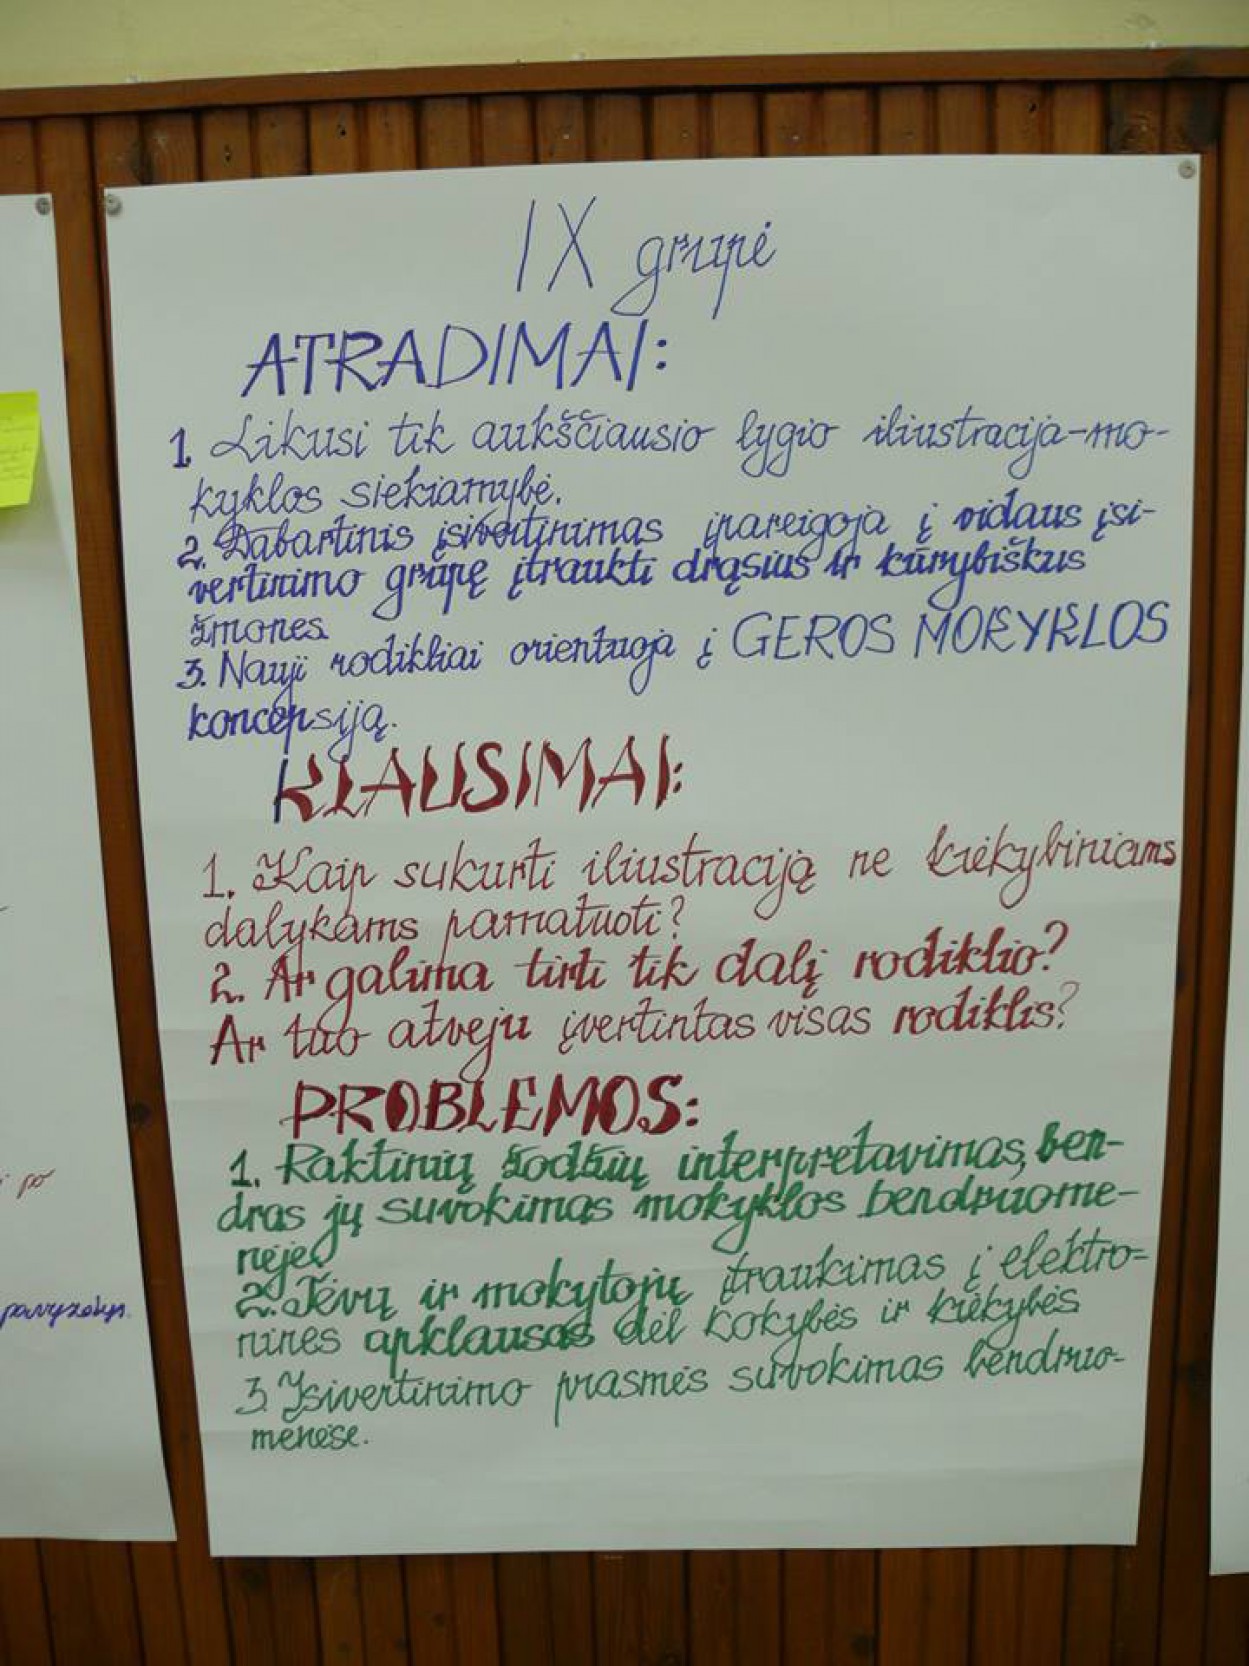 IX grupė
ATRADIMAI:
1. Likusi tik aukščiausio lygio iliustracija-mo-
kyklos siekiamybė.
2. Dabartinis įsivertinimas įpareigoja į vidaus įsi-
vertinimo grupę įtraukti drąsius ir kūrybiškus
žmones
3. Nauji rodikliai orientuoja į GEROS MOKYKLOS
koncepsiją.
KLAUSIMAI:
1. Kaip sukurti iliustraciją ne kiekybiniams
dalykams pamatuoti?
2. Ar galima tirti tik dalį rodiklio?
Ar tuo atveju įvertintas visas rodiklis?
PROBLEMOS:
1. Raktinių žodžių interpretavimas, ben-
dras jų suvokimas mokyklos bendruome-
nėje.
2. Tėvų ir mokytojų įtraukimas į elektro-
nines apklausas dėl kokybės ir kiekybės
3. Įsivertinimo prasmės suvokimas bendruo-
menėse.
po